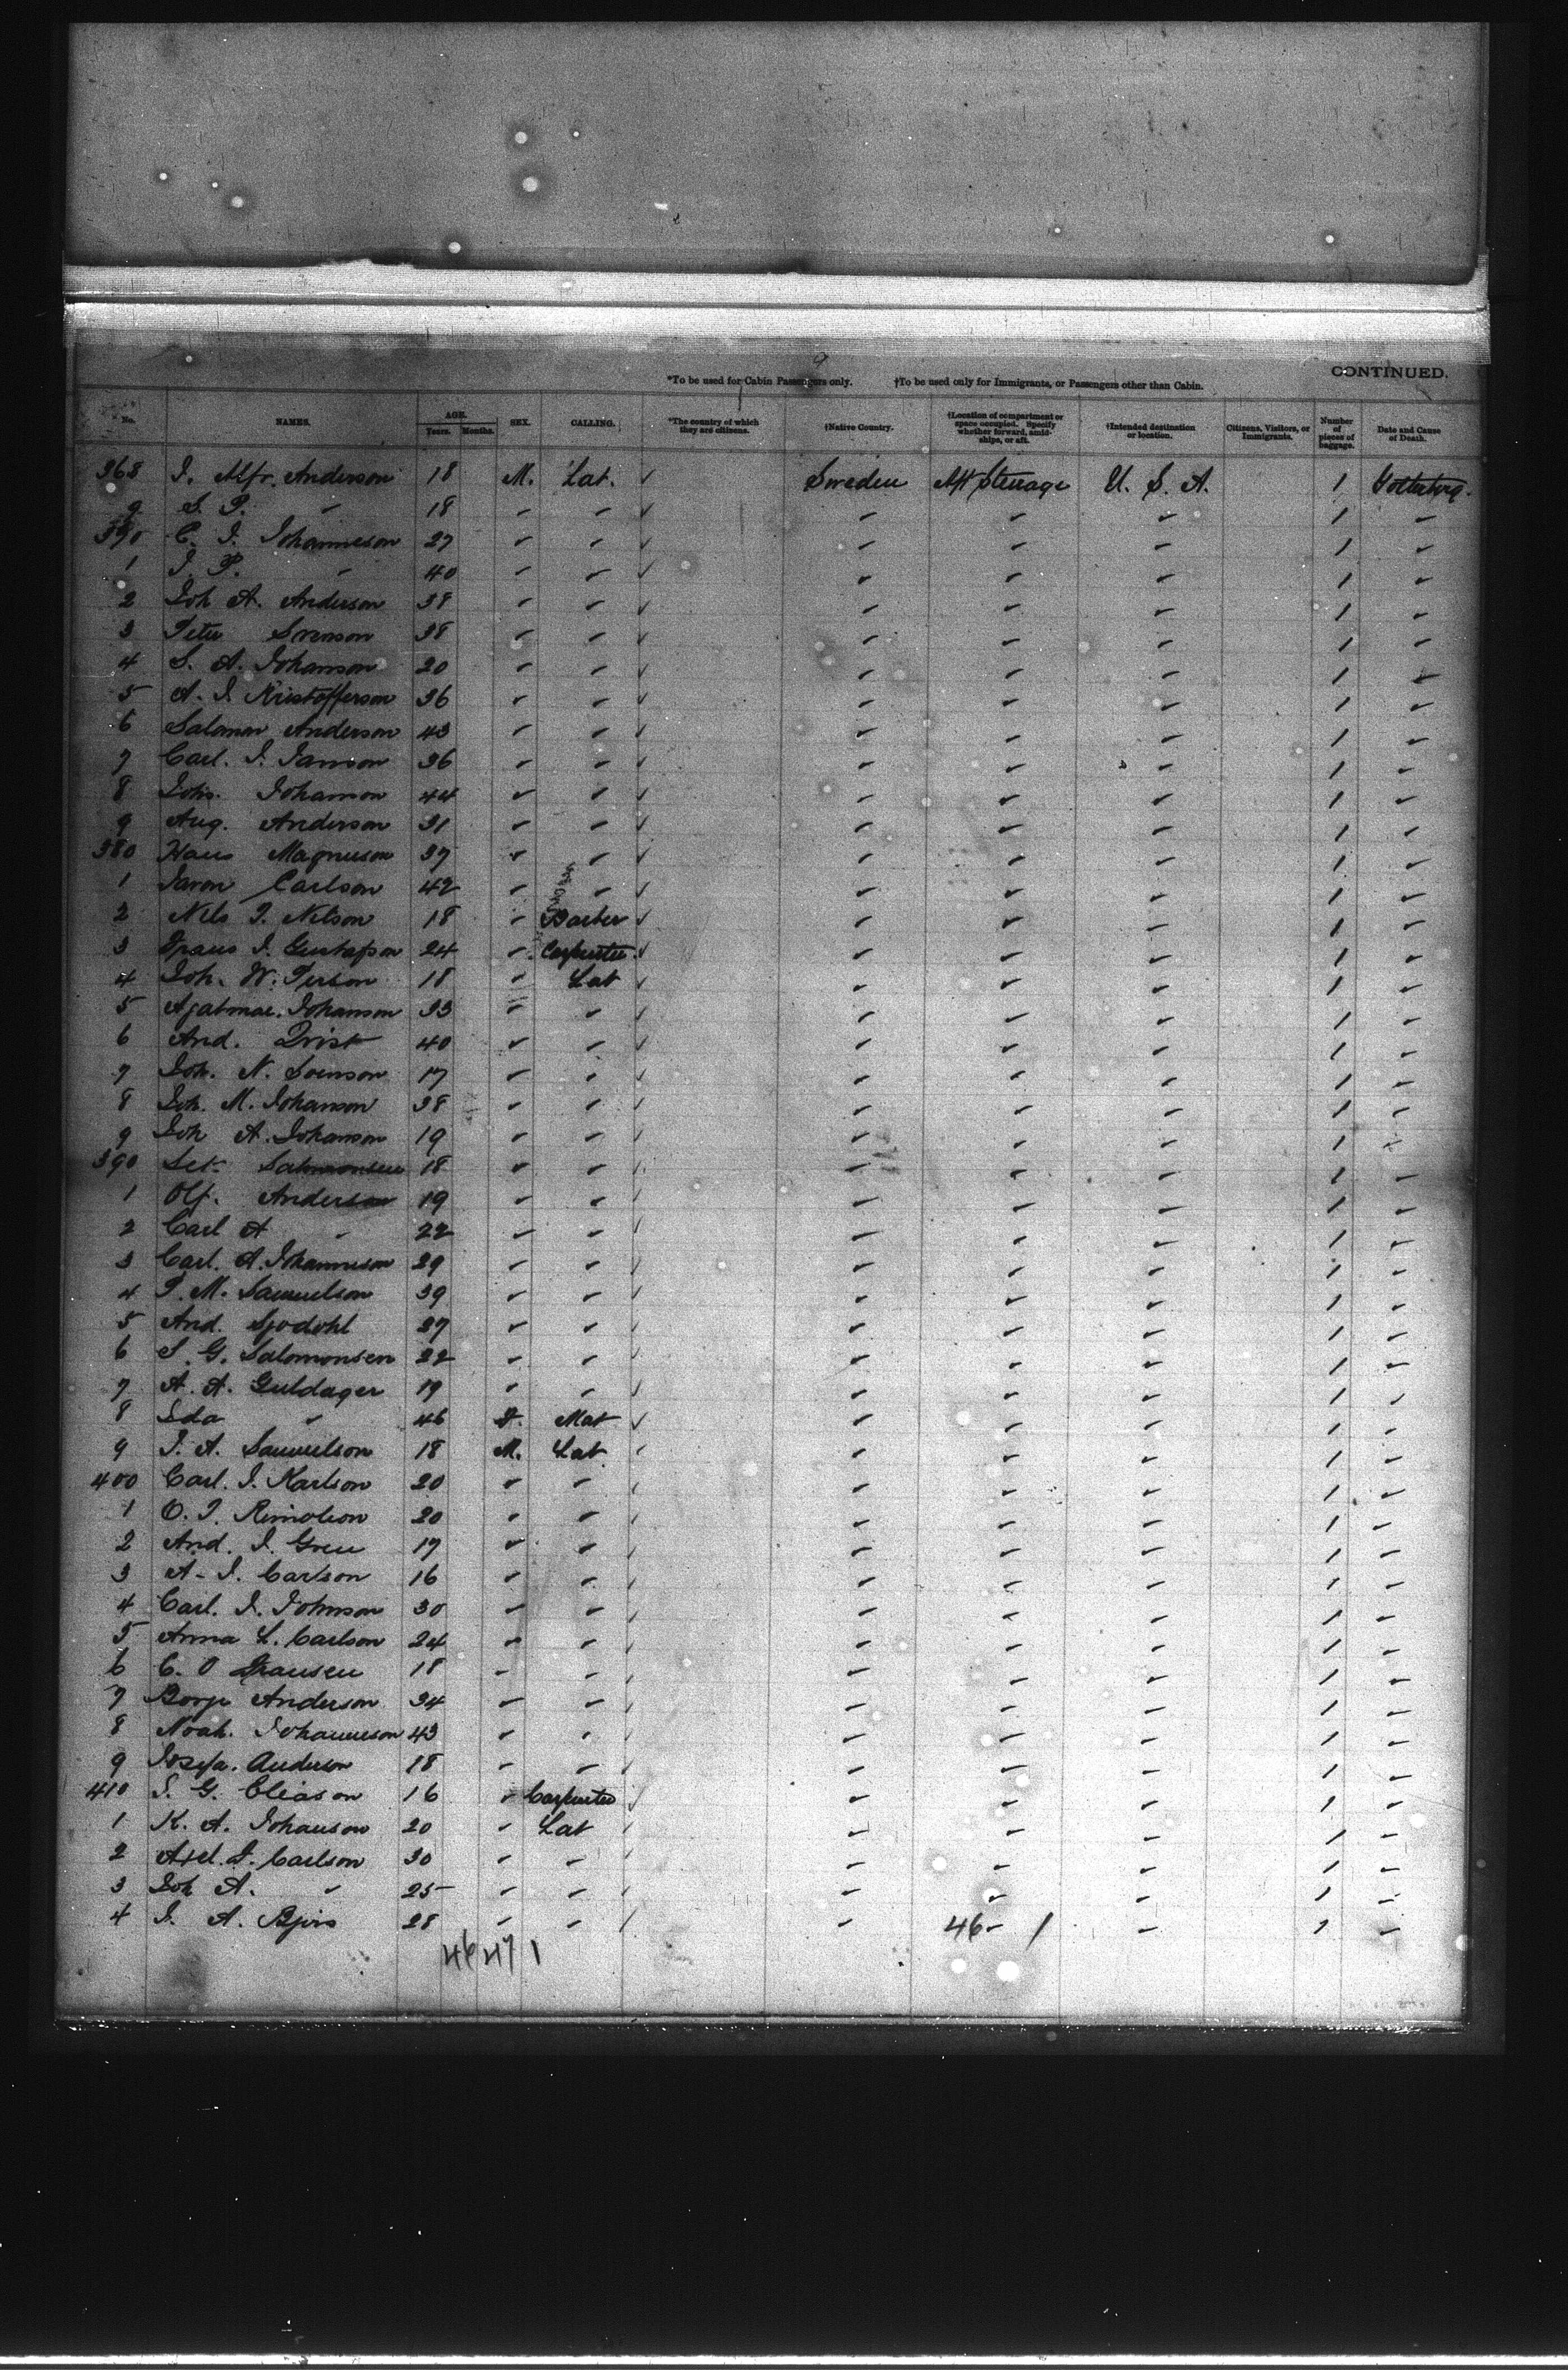 9
CONTINUED.
*To be used for Cabin Passengers only. †To be used only for Immigrants, or Passengers other than Cabin.
No. NAMES. AGE. Years. Months. SEX. CALLING. *The country of which they are citizens. †Native Country. †Location of compartment or space occupied. Specify whether forward, amidships, or aft. †Intended destination or location. Citizens, Visitors, or Immigrants. Number of pieces of baggage. Date and Cause of Death.
368 J. Alfr. Anderson 18 M. Lab. ✓ Sweden Aft Steerage U. S. A. 1 Gottenberg.
9 S. P. " 18 " " ✓ " " " 1 "
370 C. J. Johanneson 27 " " ✓ " " " 1 "
1 J. P. " 40 " " ✓ " " " 1 "
2 Joh A. Anderson 38 " " ✓ " " " 1 "
3 Peter Svenson 38 " " ✓ " " " 1 "
4 S. A. Johanson 20 " " ✓ " " " 1 "
5 A. J. Kristofferson 36 " " ✓ " " " 1 "
6 Salomon Anderson 43 " " ✓ " " " 1 "
7 Carl. J. Janson 36 " " ✓ " " " 1 "
8 Johs. Johanson 44 " " ✓ " " " 1 "
9 Aug. Anderson 31 " " ✓ " " " 1 "
380 Hans Magnuson 37 " " ✓ " " " 1 "
1 Carlson 42 " " ✓ " " " 1 "
2 Nils J. Nelson 18 " Barber ✓ " " " 1 "
3 Frans J. Gustafson 24 " Carpenter ✓ " " " 1 "
4 Joh. W. Person 18 " Lab ✓ " " " 1 "
5 Johanson 33 " " ✓ " " " 1 "
6 And. Qvist 40 " " ✓ " " " 1 "
7 Joh. N. Svenson 17 " " ✓ " " " 1 "
8 Joh. M. Johanson 38 " " ✓ " " " 1 "
9 Joh A. Johanson 19 " " ✓ " " " 1 "
390 Salomonsen 18 " " ✓ " " " 1 "
1 Olf. Anderson 19 " " ✓ " " " 1 "
2 Carl A " 22 " " ✓ " " " 1 "
3 Carl. A. Johanneson 29 " " ✓ " " " 1 "
4 P. M. Samuelson 39 " " ✓ " " " 1 "
5 And. Sjodohl 27 " " ✓ " " " 1 "
6 S. G. Salomonsen 22 " " ✓ " " " 1 "
7 A. A. Guldager 19 " " ✓ " " " 1 "
8 Ida " 46 F. Mat ✓ " " " 1 "
9 J. A. Samuelson 18 M. Lab ✓ " " " 1 "
400 Carl. J. Karlson 20 " " ✓ " " " 1 "
1 O. J. 20 " " ✓ " " " 1 "
2 And. J. Gren 17 " " ✓ " " " 1 "
3 A- J. Carlson 16 " " ✓ " " " 1 "
4 Carl. J. Johnson 30 " " ✓ " " " 1 "
5 Anna L. Carlson 24 " " ✓ " " " 1 "
6 C. O Fransen 18 " " ✓ " " " 1 "
7 Borje Anderson 34 " " ✓ " " " 1 "
8 Noah. Johanneson 43 " " ✓ " " " 1 "
9 Josefa. Anderson 18 " " ✓ " " " 1 "
410 S. G. Eliason 16 " Carpenter ✓ " " " 1 "
1 K. A. Johanson 20 " Lab ✓ " " " 1 "
2 Axel. F. Carlson 30 " " ✓ " " " 1 "
3 Joh A. " 25 " " ✓ " " " 1 "
4 J. A. 28 " " ✓ " 46- 1 " 1 "
46 47 1